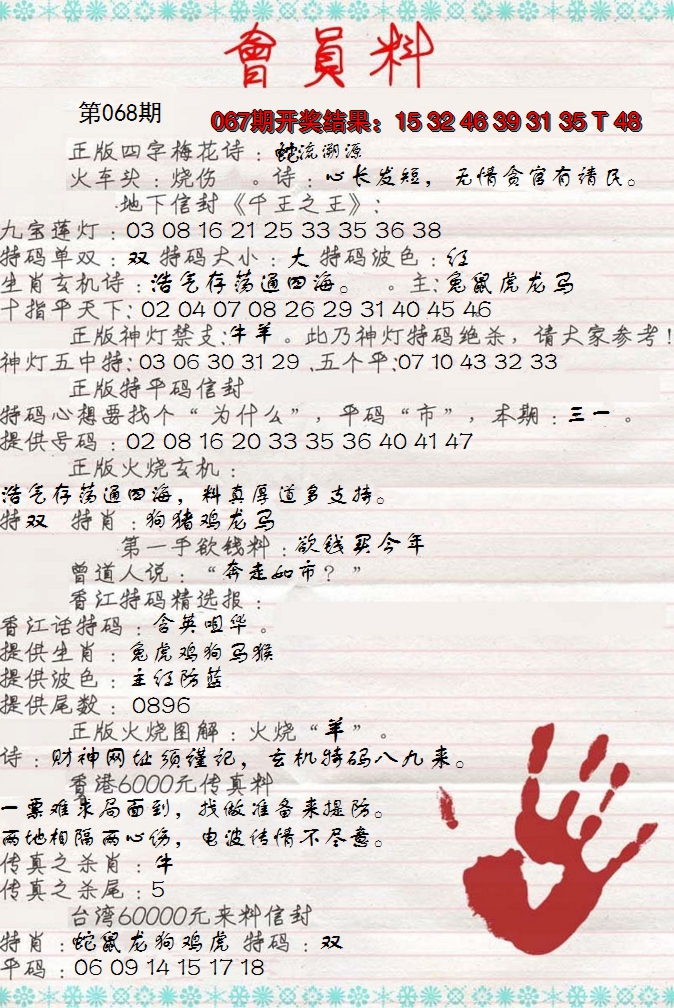 會員料
第068期
067期开奖结果：15 32 46 39 31 35 T 48
正版四字梅花诗：蛇流溯源
火车头：烧伤 。诗：心长发短，无情贪官有请民。
地下信封《千王之王》：
九宝莲灯：03 08 16 21 25 33 35 36 38
特码单双：双 特码大小：大 特码波色：红
生肖玄机诗：浩气存荡通四海。 。主：兔鼠虎龙马
十指平天下：02 04 07 08 26 29 31 40 45 46
正版神灯禁支：牛羊。此乃神灯特码绝杀，请大家参考！
神灯五中特：03 06 30 31 29 .五个平：07 10 43 32 33
正版特平码信封
特码心想要找个“为什么”，平码“市”，本期：三一 。
提供号码：02 08 16 20 33 35 36 40 41 47
正版火烧玄机：
浩气存荡通四海，料真厚道多支持。
特双 特肖：狗猪鸡龙马
第一手欲钱料：欲钱买今年
曾道人说：“奔走如市？”
香江特码精选报：
香江话特码：含英咀华。
提供生肖：兔虎鸡狗马猴
提供波色：主红防蓝
提供尾数：0896
正版火烧图解：火烧“羊”。
诗：财神网址须谨记，玄机特码八九来。
香港6000元传真料
一票难求局面到，找做准备来提防。
两地相隔两心伤，电波传情不尽意。
传真之杀肖：牛
传真之杀尾：5
台湾60000元来料信封
特肖：蛇鼠龙狗鸡虎 特码：双
平码：06 09 14 15 17 18